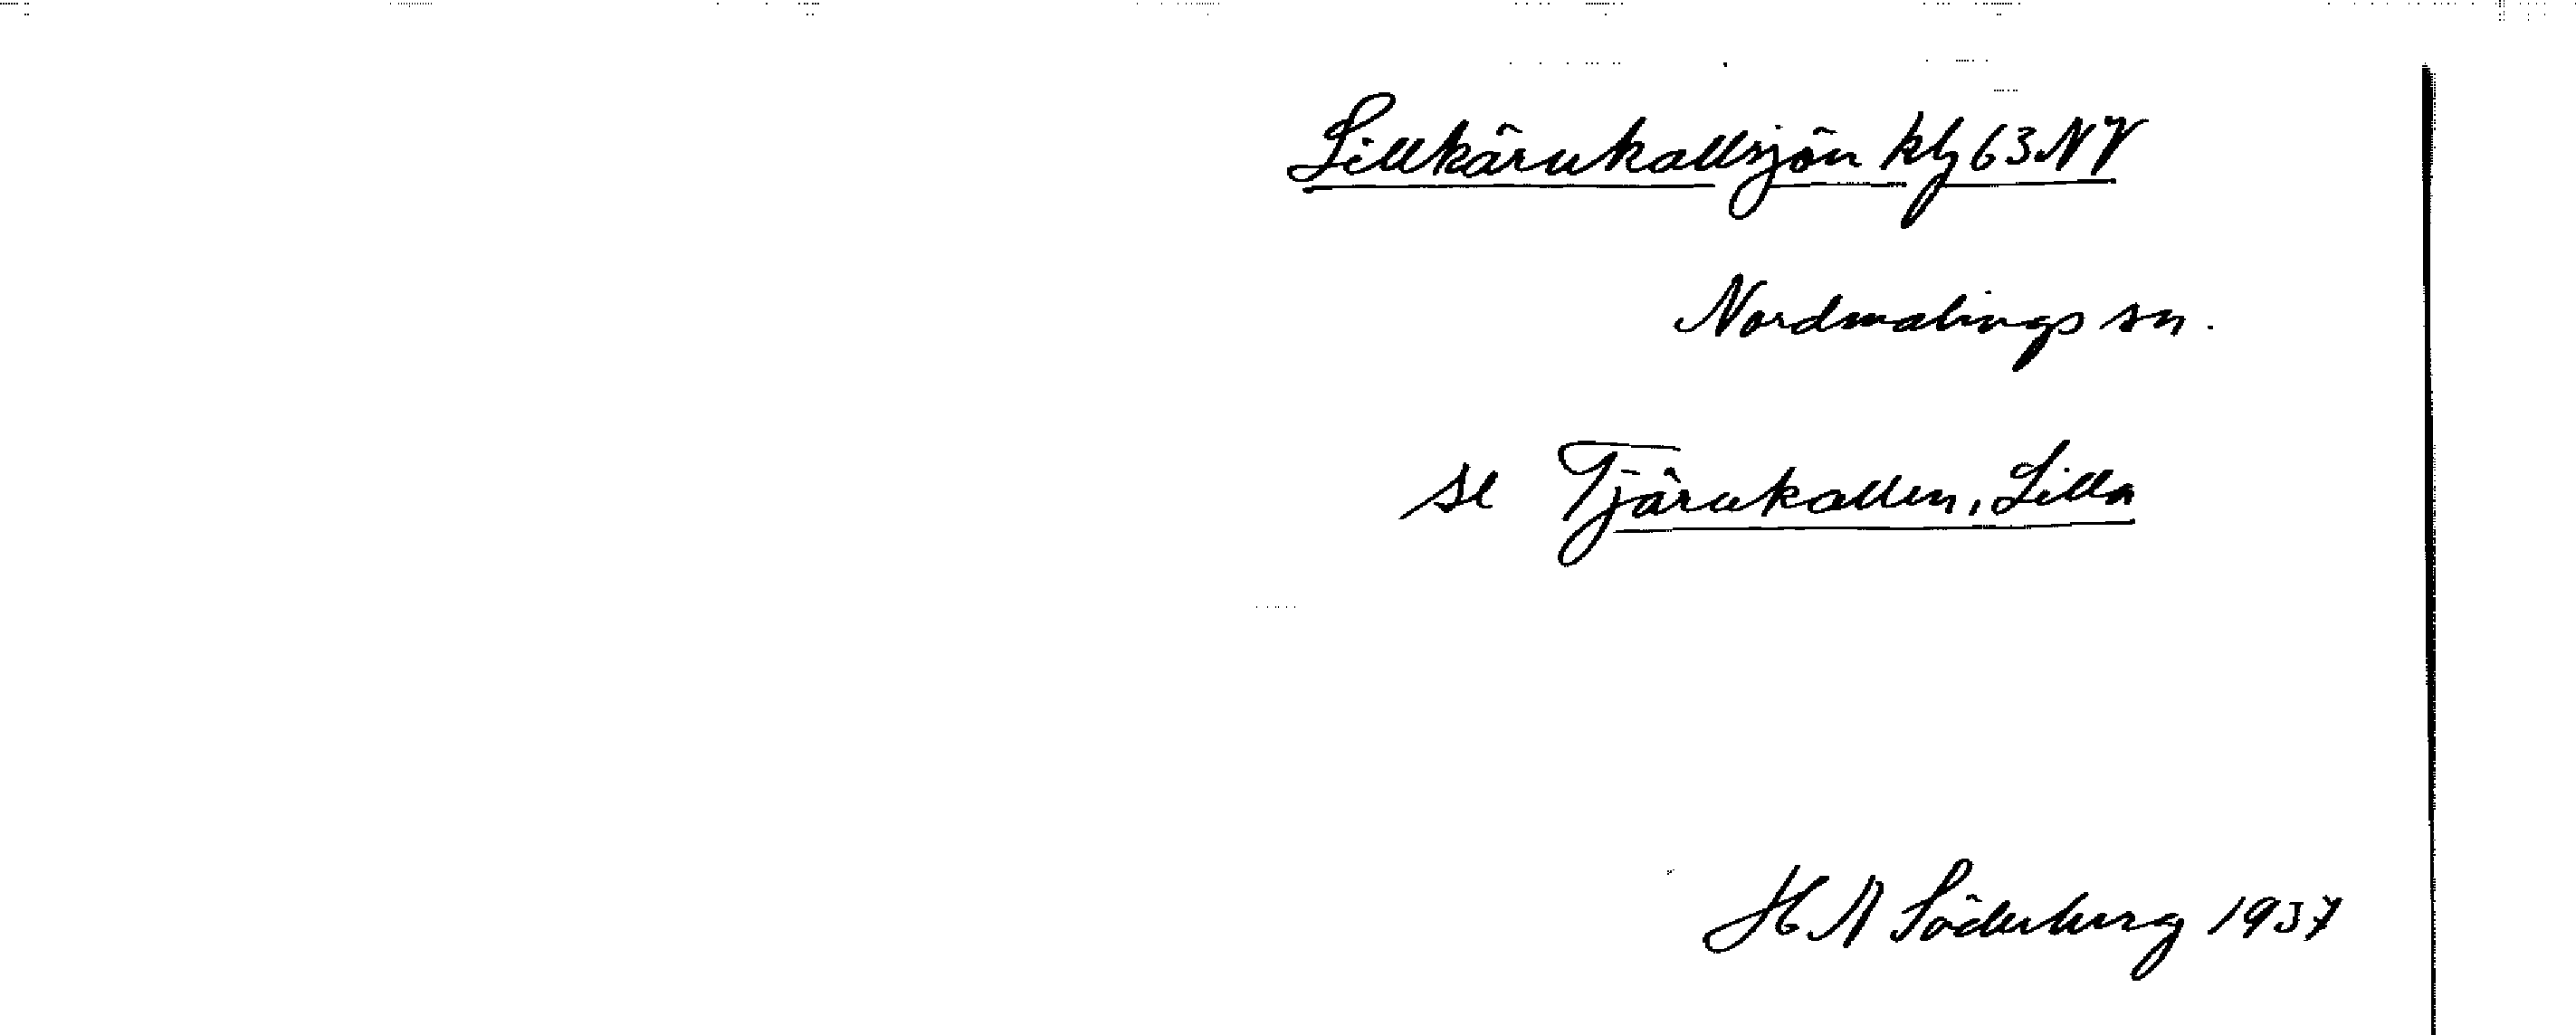 Lillkärukallsjön kbl 63 NV
Nordmalings sn.
se Tjärukallen, Lilla
H A Söderberg 1937